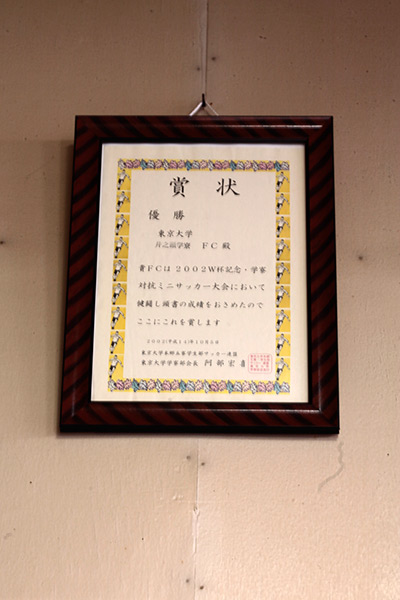 賞状
優勝
東京大学
井之頭学寮 FC殿
貴FCは2002W杯記念・学寮
対抗ミニサッカー大会において
健闘し頭書の成績をおさめたので
ここにこれを賞します
2002(平成14)年10月5日
東京大学学寮部会長 阿部宏